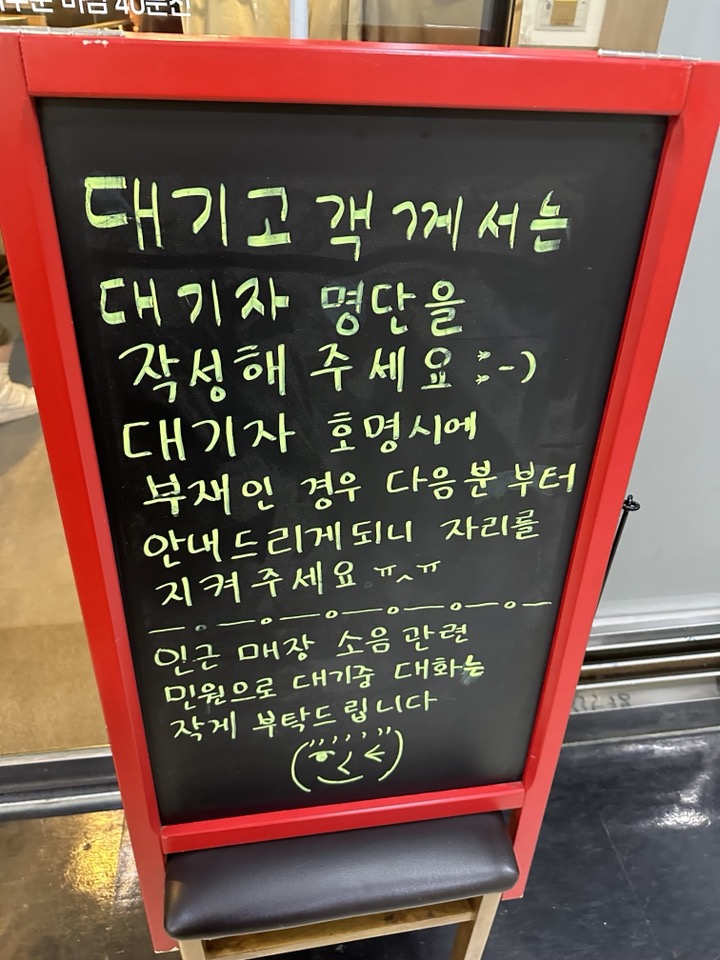 마감 40분전
대기고객께서는
대기자 명단을
작성해 주세요 :-)
대기자 호명시에
부재인 경우 다음분부터
안내드리게되니 자리를
지켜주세요 ㅠ^ㅠ
인근 매장 소음관련
민원으로 대기중 대화는
작게 부탁드립니다